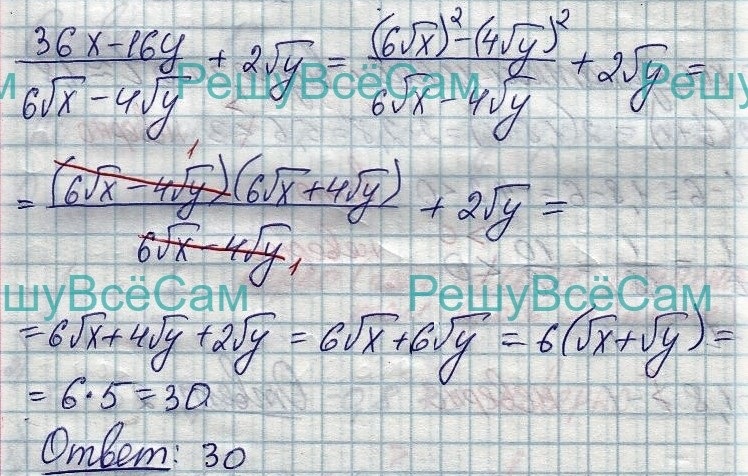 (36x-16y)/(6√x-4√y) + 2√y = ((6√x)²-(4√y)²)/(6√x-4√y) + 2√y =
РешуВсёСам
= ((6√x-4√y)¹(6√x+4√y))/(6√x-4√y)₁ + 2√y =
шуВсёСам РешуВсёСам
= 6√x+4√y+2√y = 6√x+6√y = 6(√x+√y) =
= 6·5=30
Ответ: 30